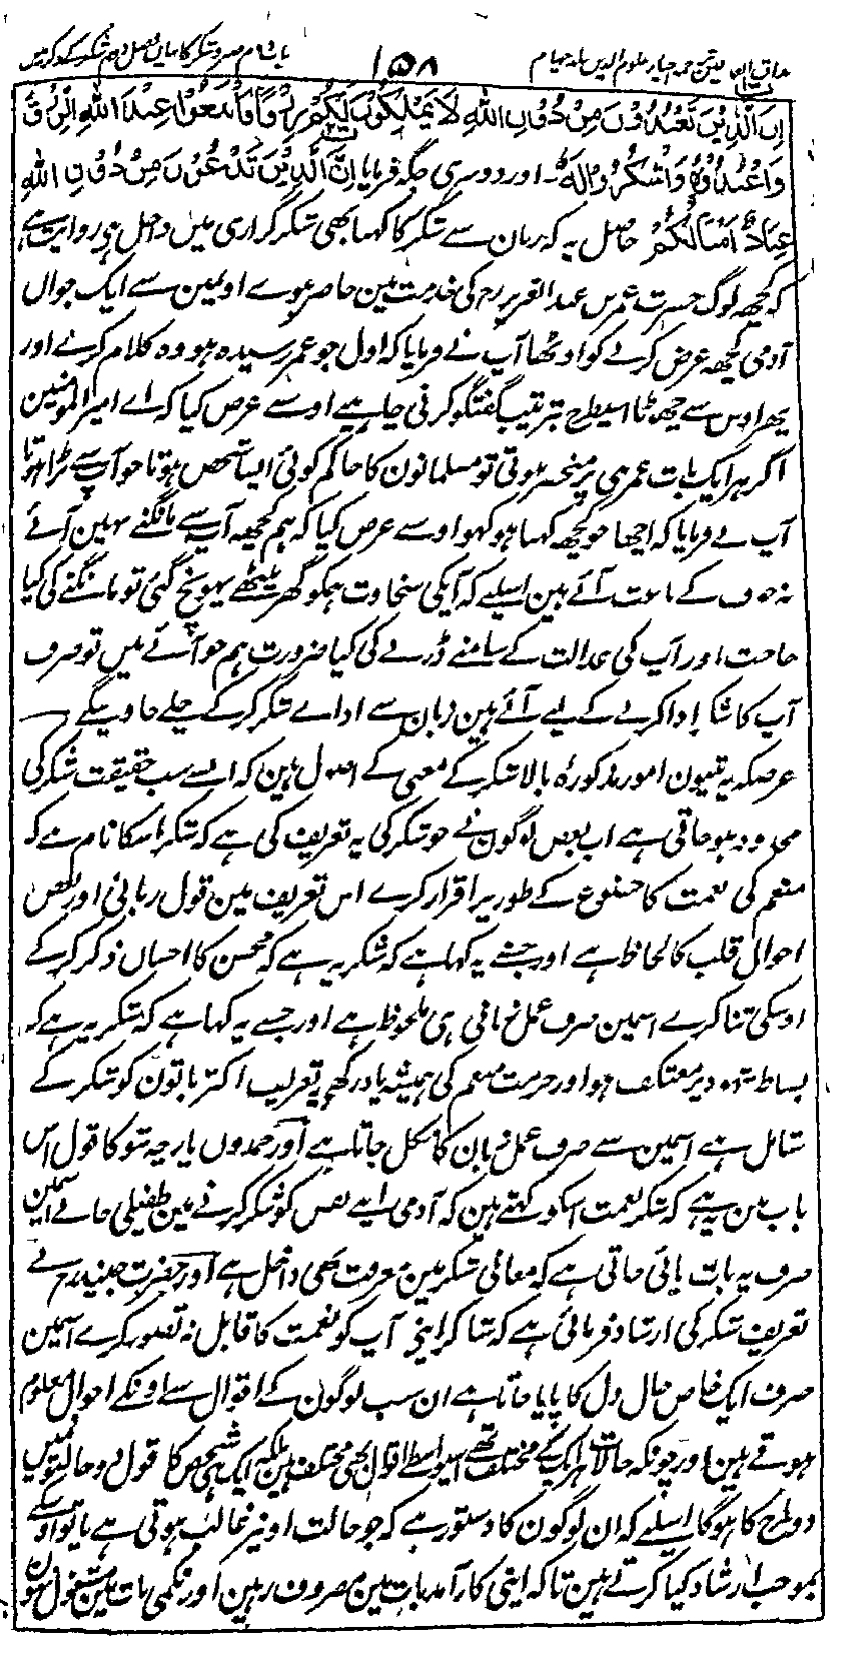 مذاق العارفین ترجمہ احیاء علوم الدین جلد چہارم ۱۵۸ باب دوم صبر و شکر کا بیان فصل دوم شکر کے ذکر میں
اِنَّ الَّذِیْنَ تَعْبُدُوْنَ مِنْ دُوْنِ اللّٰهِ لَا یَمْلِكُوْنَ لَكُمْ رِزْقًا فَابْتَغُوْا عِنْدَ اللّٰهِ الرِّزْقَ
وَاعْبُدُوْهُ وَاشْكُرُوْا لَهٗ ۔ اور دوسری جگہ فرمایا اِنَّ الَّذِیْنَ تَدْعُوْنَ مِنْ دُوْنِ اللّٰهِ
عِبَادٌ اَمْثَالُكُمْ حاصل یہ کہ زبان سے شکر کا کہنا بھی شکر گزاری میں داخل ہی روایت ہے
کہ کچھہ لوگ حضرت عمر بن عبد العزیز رح کی خدمت مین حاضر ہوے اونمین سے ایک جوان
آدمی کچھہ عرض کرنے کو اوٹھا آپ نے فرمایا کہ اول جو عمر رسیدہ ہو وہ کلام کرے اور
پھر اوس سے چھوٹا اسیطرح بترتیب گفتگو کرنی چاہیے اوسنے عرض کیا کہ اے امیر المومنین
اگر ہر ایک بات عمر ہی پر منحصر ہوتی تو مسلمانون کا حاکم کوئی ایسا شخص ہوتا جو آپ سے بڑا ہوتا
آپ نے فرمایا کہ اچھا جو کچھہ کہنا ہو کہو اوسنے عرض کیا کہ ہم کچھہ آپ سے مانگنے نہین آئے
نہ خوف کے باعث آئے ہین اسلیے کہ آپکی سخاوت ہمکو گھر بیٹھے پہونچ گئی تو مانگنے کی کیا
حاجت اور آپ کی عدالت کے سامنے ڈرنے کی کیا ضرورت ہم جو آئے ہیں تو صرف
آپ کا شکر ادا کرنے کے لیے آئے ہین زبان سے اداے شکر کرکے چلے جاوینگے
غرضکہ یہ تینون امور مذکورۂ بالا شکر کے معنی کے اصول ہین کہ انسے سب حقیقت شکر کی
محدود ہو جاتی ہے اب بعض لوگون نے جو شکر کی یہ تعریف کی ہے کہ شکر اسکا نام ہے کہ
منعم کی نعمت کا خضوع کے طور پر اقرار کرے اس تعریف مین قول زبانی اور بعض
احوال قلب کا لحاظ ہے اور جسنے یہ کہا ہے کہ شکر یہ ہے کہ محسن کا احسان ذکر کرکے
اوسکی ثنا کرے اسمین صرف عمل زبانی ہی ملحوظ ہے اور جسنے یہ کہا ہے کہ شکر یہ ہے کہ
بساط شہود پر معتکف ہو اور حرمت منعم کی ہمیشہ یاد رکھے یہ تعریف اکثر باتون کو شکر کے
شامل ہے اسمین سے صرف عمل زبان کا نکل جاتا ہے اور حمدون پارچہ شو کا قول اس
باب مین یہ ہے کہ شکر نعمت اسکو کہتے ہین کہ آدمی اپنے نفس کو شکر کرنے مین طفیلی جانے اسمین
صرف یہ بات پائی جاتی ہے کہ معانی شکر مین معرفت بھی داخل ہے اور حضرت جنید رح نے
تعریف شکر کی ارشاد فرمائی ہے کہ شاکر اپنے آپ کو نعمت کا قابل نہ تصور کرے اسمین
صرف ایک خاص حال دل کا پایا جاتا ہے ان سب لوگون کے اقوال سے اونکے احوال معلوم
ہوتے ہین اور چونکہ حالات ہر ایک کے مختلف تھے اسیواسطے اقوال بھی مختلف ہین بلکہ ایک ہی شخص کا قول دو حالتونمیں
دو طرح کا ہوگا اسلیے کہ ان لوگون کا دستور ہے کہ جو حالت اونپر غالب ہوتی ہے یا تو اوسکے
بموجب ارشاد کیا کرتے ہین تاکہ اپنی کارآمد بات مین مصروف رہین اور نکمی بات مین مشغول نہون